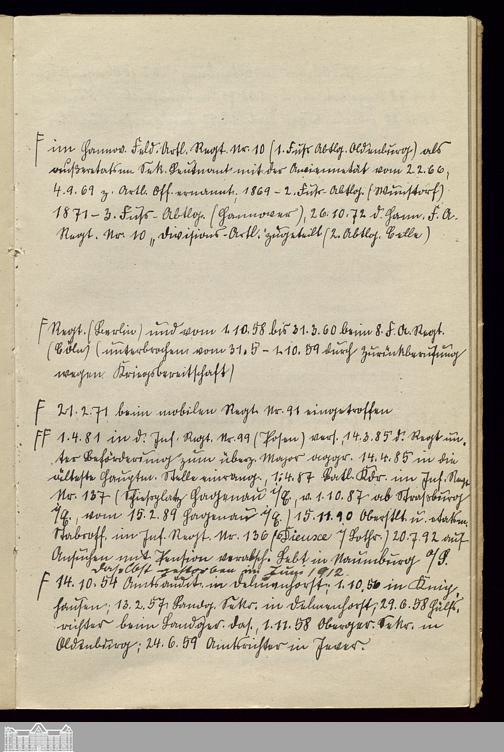 F im Hannov. Feld-Artl. Regt. Nr. 10 (1. Fuß-Abtlg. Oldenburg) als
außeretatsm. Sek. Leutnant mit der Anciennetät vom 2.2.66,
4.9.69 z. Artl. Off. ernannt, 1869 - 2. Fuß-Abtlg. (Wunstorf)
1871 - 3. Fuß-Abtlg. (Hannover), 26.10.72 d. Hann. F. A.
Regt. Nr. 10 „Divisions-Artl." zugeteilt (2. Abtlg. Celle)
F Regt. (Berlin) und vom 1.10.58 bis 31.3.60 beim 8. F. A. Regt.
(Cöln) (unterbrochen vom 31.5 - 1.10.59 durch Zurückberufung
wegen Kriegsbereitschaft)
F 21.2.71 beim mobilen Regt. Nr. 91 eingetroffen
FF 1.4.81 in d. Inf. Regt. Nr. 99 (Posen) vers. 14.3.85 d. Regt. un-
ter Beförderung zum überz. Major aggr. 14.4.85 in die
älteste Hauptm. Stelle einrang., 1.4.87 Batl. Kdr. im Inf. Regt.
Nr. 137 (Schießplatz Hagenau i/E., v. 1.10.87 ab Straßburg
i/E., vom 15.2.89 Hagenau i/E.) 15.11.90 Oberstlt. u. etatsm.
Stabsoff. im Inf. Regt. Nr. 136 (Dieuze i/Lothr.) 20.7.92 auf
Ansuchen mit Pension verabsch. Lebt in Naumburg a/S.
daselbst gestorben im Juni 1912
F 14.10.54 Amtsaudit. in Delmenhorst; 1.10.56 in Knip-
hausen; 13.2.57 Landg. Sekr. in Delmenhorst; 29.6.58 Hülfs-
richter beim Landger. das., 1.11.58 Oberger. Sekr. in
Oldenburg; 24.6.59 Amtsrichter in Jever.